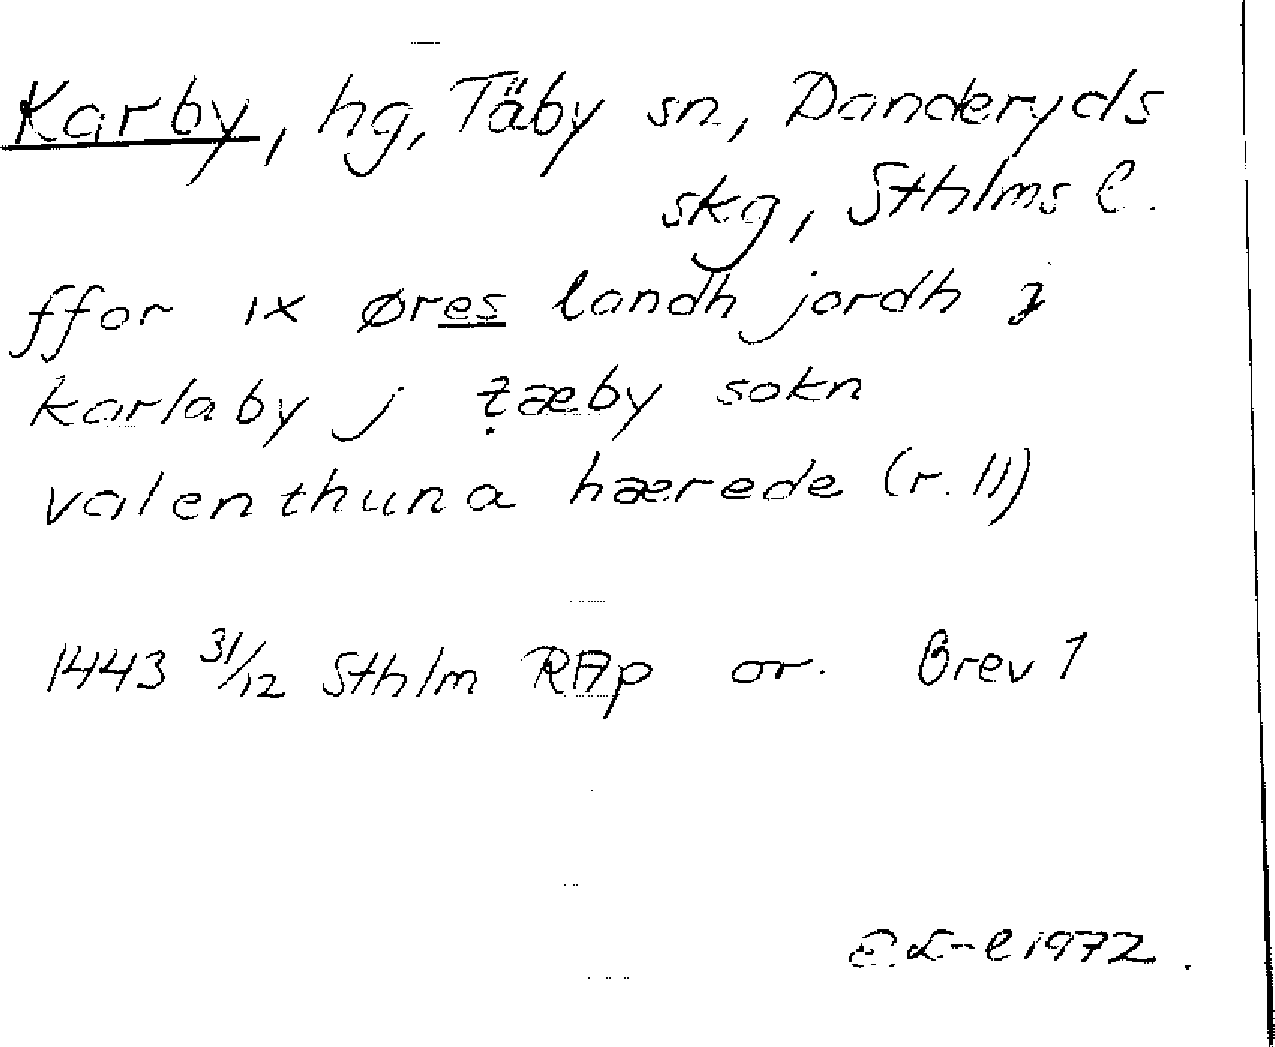 Karby, hg, Täby sn, Danderyds
skg, Sthlms l.
ffor ix øres landh jordh j
karlaby j tæby sokn
valenthuna hærede (r. 11)
1443 31/12 Sthlm RAp or. Brev 1
E.L-l 1972.